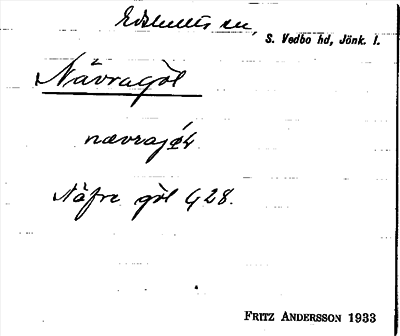 Edshults sn,
S. Vedbo hd, Jönk. l.
Nävragöl
nævrajö́4
Näfre göl G 28.
FRITZ ANDERSSON 1933